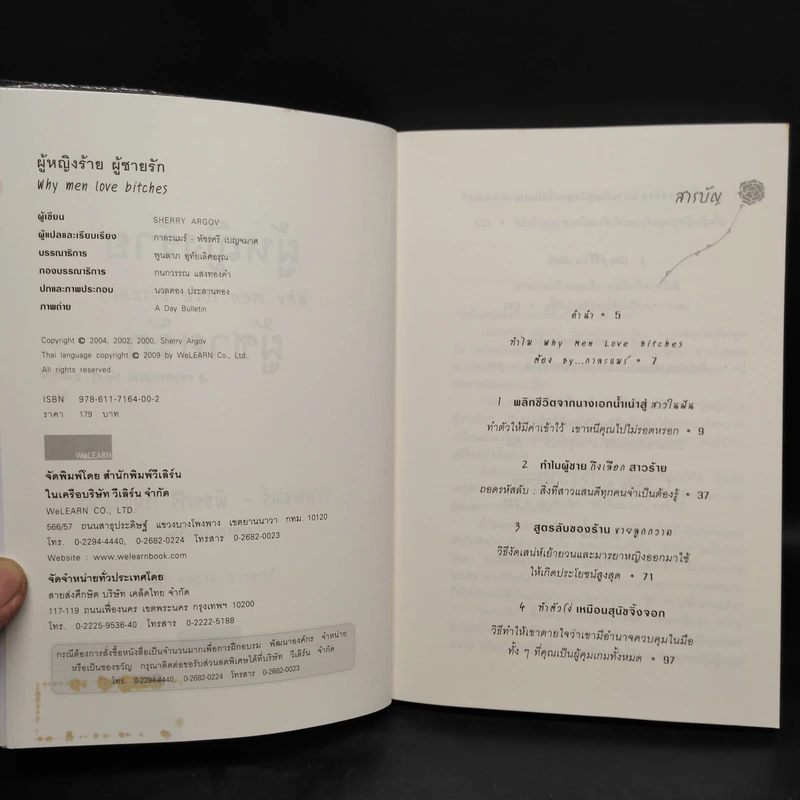 ผู้หญิงร้าย ผู้ชายรัก
Why men love bitches
ผู้เขียน SHERRY ARGOV
ผู้แปลและเรียบเรียง กาละแมร์ - พัชรศรี เบญจมาศ
บรรณาธิการ พูนลาภ อุทัยเลิศอรุณ
กองบรรณาธิการ กนกวรรณ แสงทองคำ
ปกและภาพประกอบ นวลตอง ประสานทอง
ภาพถ่าย A Day Bulletin
Copyright © 2004, 2002, 2000, Sherry Argov
Thai language copyright © 2009 by WeLEARN Co., Ltd.
All rights reserved.
ISBN 978-611-7164-00-2
ราคา 179 บาท
WeLEARN
จัดพิมพ์โดย สำนักพิมพ์วีเลิร์น
ในเครือบริษัท วีเลิร์น จำกัด
WeLEARN CO., LTD.
566/57 ถนนสาธุประดิษฐ์ แขวงบางโพงพาง เขตยานนาวา กทม. 10120
โทร. 0-2294-4440, 0-2682-0224 โทรสาร 0-2682-0023
Website : www.welearnbook.com
จัดจำหน่ายทั่วประเทศโดย
สายส่งศึกษิต บริษัท เคล็ดไทย จำกัด
117-119 ถนนเฟื่องนคร เขตพระนคร กรุงเทพฯ 10200
โทร. 0-2225-9536-40 โทรสาร 0-2222-5188
กรณีต้องการสั่งซื้อหนังสือเป็นจำนวนมากเพื่อการฝึกอบรม พัฒนาองค์กร จำหน่าย
หรือเป็นของขวัญ กรุณาติดต่อขอรับส่วนลดพิเศษได้ที่บริษัท วีเลิร์น จำกัด
โทร. 0-2294-4440, 0-2682-0224 โทรสาร 0-2682-0023
สารบัญ
คำนำ • 5
ทำไม Why Men Love Bitches
ต้อง By...กาละแมร์ • 7
1 พลิกชีวิตจากนางเอกน้ำเน่าสู่ สาวในฝัน
ทำตัวให้มีค่าเข้าไว้ เขาหนีคุณไปไม่รอดหรอก • 9
2 ทำไมผู้ชาย ถึงเลือก สาวร้าย
ถอดรหัสลับ : สิ่งที่สาวแสนดีทุกคนจำเป็นต้องรู้ • 37
3 สูตรลับของร้าน ขายลูกกวาด
วิธีงัดเสน่ห์เย้ายวนและมารยาหญิงออกมาใช้
ให้เกิดประโยชน์สูงสุด • 71
4 ทำตัวโง่ เหมือนสุนัขจิ้งจอก
วิธีทำให้เขาตายใจว่าเขามีอำนาจควบคุมในมือ
ทั้ง ๆ ที่คุณเป็นผู้คุมเกมทั้งหมด • 97